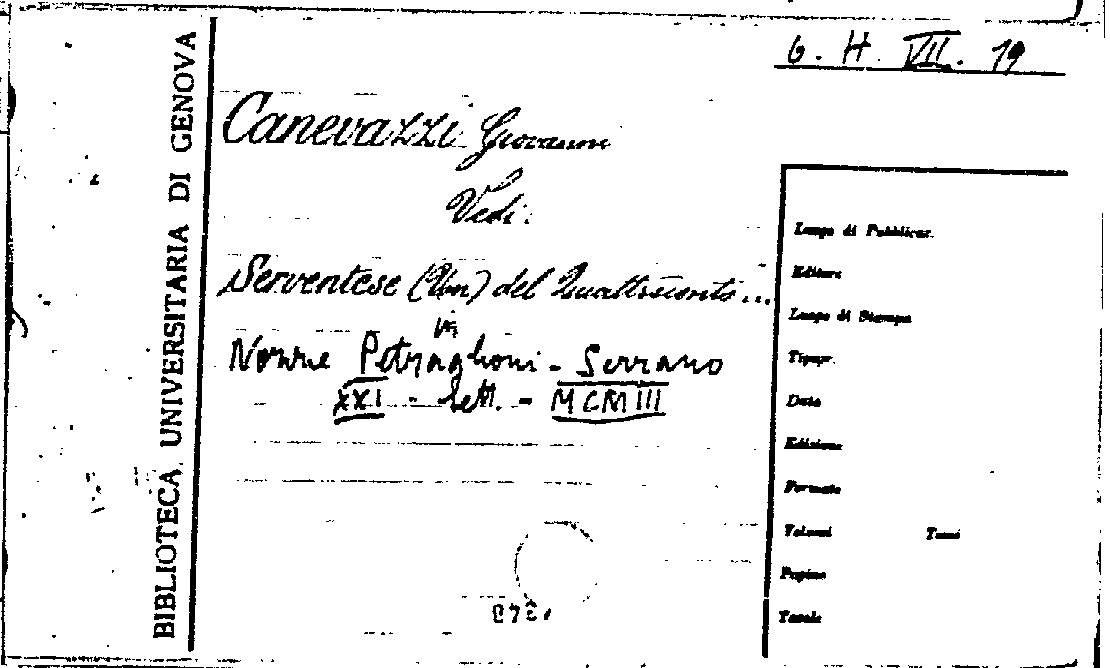 G. H. VII. 19
BIBLIOTECA UNIVERSITARIA DI GENOVA
Canevazzi Giovanni
Vedi:
Serventese (Un) del Quattrocento...
in
Nozze Petraglioni - Serrano
XXI - Sett. - MCMIII
Luogo di Pubblicaz.
Editore
Luogo di Stampa
Tipogr.
Data
Edizione
Formato
Volumi Tomi
Pagine
Tavole